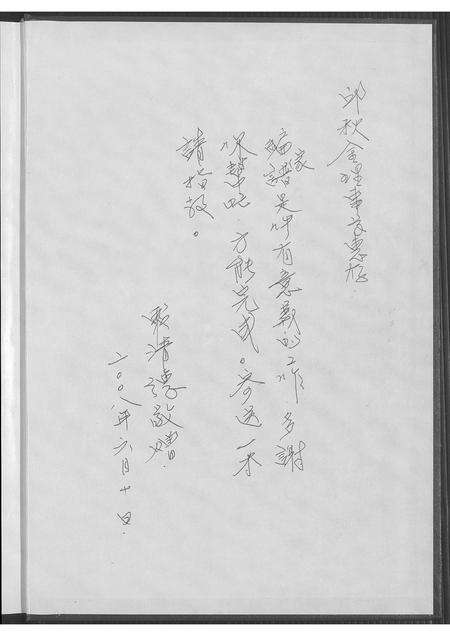 邱秋全理事長惠存
編家譜是件有意義的工作 多謝
你幫忙 方能完成。寄送一本
請指教。
清 敬贈
二〇〇八年六月十日